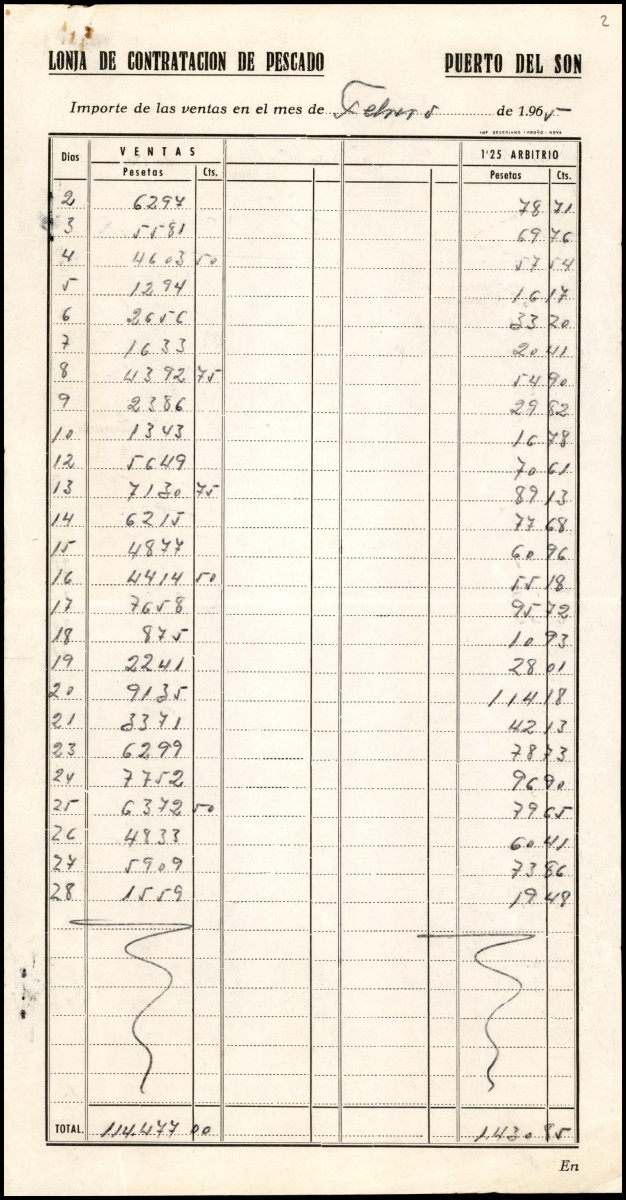 2
LONJA DE CONTRATACION DE PESCADO PUERTO DEL SON
Importe de las ventas en el mes de Febrero de 1.965
Días VENTAS 1'25 ARBITRIO
Pesetas Cts. Pesetas Cts.
2 6297 78 71
3 5581 69 76
4 4603 50 57 54
5 1294 16 17
6 2656 33 20
7 1633 20 41
8 4392 75 54 90
9 2386 29 82
10 1343 16 78
12 5649 70 61
13 7130 75 89 13
14 6215 77 68
15 4877 60 96
16 4414 50 55 18
17 7658 95 72
18 875 10 93
19 2241 28 01
20 9135 114 18
21 3371 42 13
23 6299 78 73
24 7752 96 90
25 6372 50 79 65
26 4833 60 41
27 5909 73 86
28 1559 19 48
TOTAL. 114.477 00 1.430 95
En